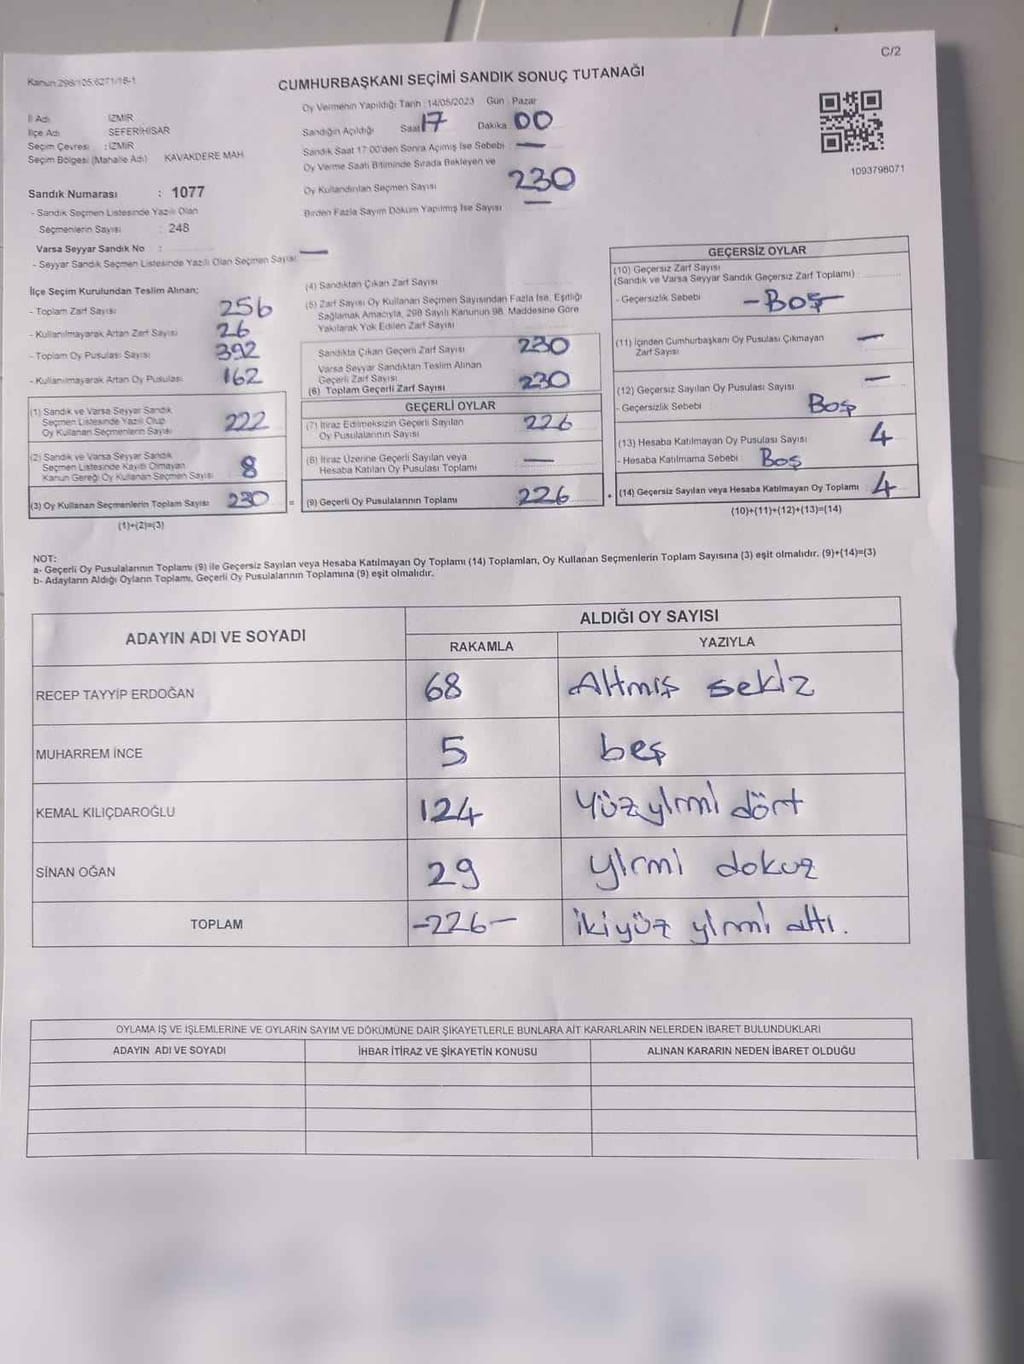 C/2
Kanun:298/105;6271/18-1
CUMHURBAŞKANI SEÇİMİ SANDIK SONUÇ TUTANAĞI
İl Adı : İZMİR
İlçe Adı : SEFERİHİSAR
Seçim Çevresi : İZMİR
Seçim Bölgesi (Mahalle Adı) KAVAKDERE MAH
Sandık Numarası : 1077
- Sandık Seçmen Listesinde Yazılı Olan
Seçmenlerin Sayısı : 248
Varsa Seyyar Sandık No :
- Seyyar Sandık Seçmen Listesinde Yazılı Olan Seçmen Sayısı —
Oy Vermenin Yapıldığı Tarih : 14/05/2023 Gün : Pazar
Sandığın Açıldığı Saat 17 Dakika 00
Sandık Saat 17:00'den Sonra Açılmış İse Sebebi —
Oy Verme Saati Bitiminde Sırada Bekleyen ve
Oy Kullandırılan Seçmen Sayısı 230
Birden Fazla Sayım Döküm Yapılmış İse Sayısı —
1093798071
İlçe Seçim Kurulundan Teslim Alınan;
- Toplam Zarf Sayısı 256
- Kullanılmayarak Artan Zarf Sayısı 26
- Toplam Oy Pusulası Sayısı 392
- Kullanılmayarak Artan Oy Pusulası 162
(1) Sandık ve Varsa Seyyar Sandık
Seçmen Listesinde Yazılı Olup
Oy Kullanan Seçmenlerin Sayısı 222
(2) Sandık ve Varsa Seyyar Sandık
Seçmen Listesinde Kayıtlı Olmayan
Kanun Gereği Oy Kullanan Seçmen Sayısı 8
(3) Oy Kullanan Seçmenlerin Toplam Sayısı 230 =
(1)+(2)=(3)
(4) Sandıktan Çıkan Zarf Sayısı
(5) Zarf Sayısı Oy Kullanan Seçmen Sayısından Fazla İse, Eşitliği
Sağlamak Amacıyla, 298 Sayılı Kanunun 98. Maddesine Göre
Yakılarak Yok Edilen Zarf Sayısı
Sandıkta Çıkan Geçerli Zarf Sayısı 230
Varsa Seyyar Sandıktan Teslim Alınan
Geçerli Zarf Sayısı
(6) Toplam Geçerli Zarf Sayısı 230
GEÇERLİ OYLAR
(7) İtiraz Edilmeksizin Geçerli Sayılan
Oy Pusulalarının Sayısı 226
(8) İtiraz Üzerine Geçerli Sayılan veya
Hesaba Katılan Oy Pusulası Toplamı —
(9) Geçerli Oy Pusulalarının Toplamı 226 +
GEÇERSİZ OYLAR
(10) Geçersiz Zarf Sayısı
(Sandık ve Varsa Seyyar Sandık Geçersiz Zarf Toplamı)
- Geçersizlik Sebebi -Boş-
(11) İçinden Cumhurbaşkanı Oy Pusulası Çıkmayan
Zarf Sayısı —
(12) Geçersiz Sayılan Oy Pusulası Sayısı —
- Geçersizlik Sebebi Boş
(13) Hesaba Katılmayan Oy Pusulası Sayısı 4
- Hesaba Katılmama Sebebi Boş
(14) Geçersiz Sayılan veya Hesaba Katılmayan Oy Toplamı 4
(10)+(11)+(12)+(13)=(14)
NOT:
a- Geçerli Oy Pusulalarının Toplamı (9) ile Geçersiz Sayılan veya Hesaba Katılmayan Oy Toplamı (14) Toplamları, Oy Kullanan Seçmenlerin Toplam Sayısına (3) eşit olmalıdır. (9)+(14)=(3)
b- Adayların Aldığı Oyların Toplamı, Geçerli Oy Pusulalarının Toplamına (9) eşit olmalıdır.
ADAYIN ADI VE SOYADI ALDIĞI OY SAYISI
RAKAMLA YAZIYLA
RECEP TAYYİP ERDOĞAN 68 Altmış sekiz
MUHARREM İNCE 5 beş
KEMAL KILIÇDAROĞLU 124 Yüzyirmi dört
SİNAN OĞAN 29 yirmi dokuz
TOPLAM -226- ikiyüz yirmi altı.
OYLAMA İŞ VE İŞLEMLERİNE VE OYLARIN SAYIM VE DÖKÜMÜNE DAİR ŞİKAYETLERLE BUNLARA AİT KARARLARIN NELERDEN İBARET BULUNDUKLARI
ADAYIN ADI VE SOYADI İHBAR İTİRAZ VE ŞİKAYETİN KONUSU ALINAN KARARIN NEDEN İBARET OLDUĞU